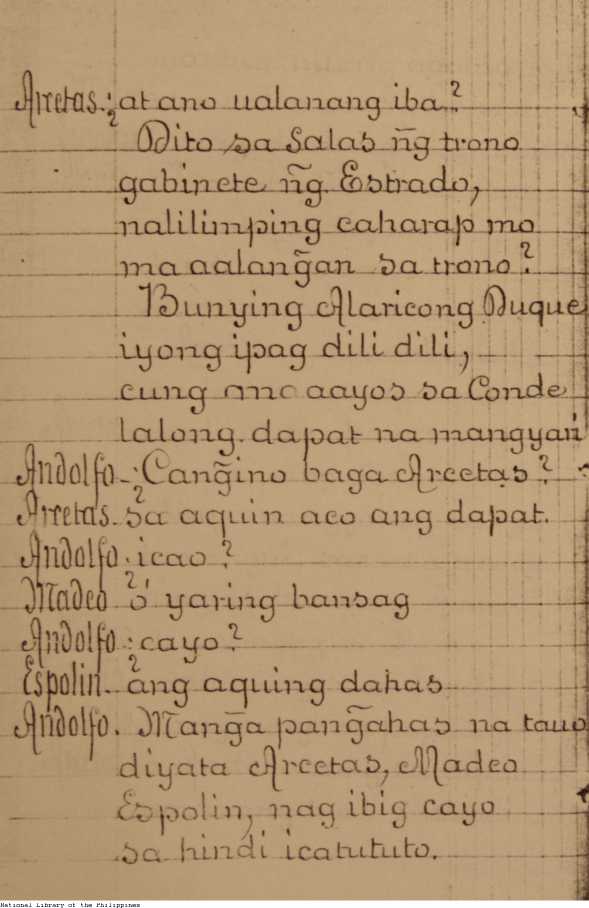 Arcetas.: at ano ualanang iba?
Dito sa Salas n͠g trono
gabinete n͠g Estrado,
nalilimping caharap mo
ma aalang̃an sa trono?
Bunying Alaricong Duque
iyong ipag dili dili,
cung ano aayos sa Conde
lalong dapat na mangyari
Andolfo.: Cang̃ino baga Arcetas?
Arcetas. sa aquin aco ang dapat.
Andolfo. icao?
Madeo ó yaring bansag
Andolfo: cayo?
Espolin. ang aquing dahas
Andolfo. Mang̃a pang̃ahas na tauo
diyata Arcetas, Madeo
Espolin, nag ibig cayo
sa hindi icatututo.
National Library of the Philippines